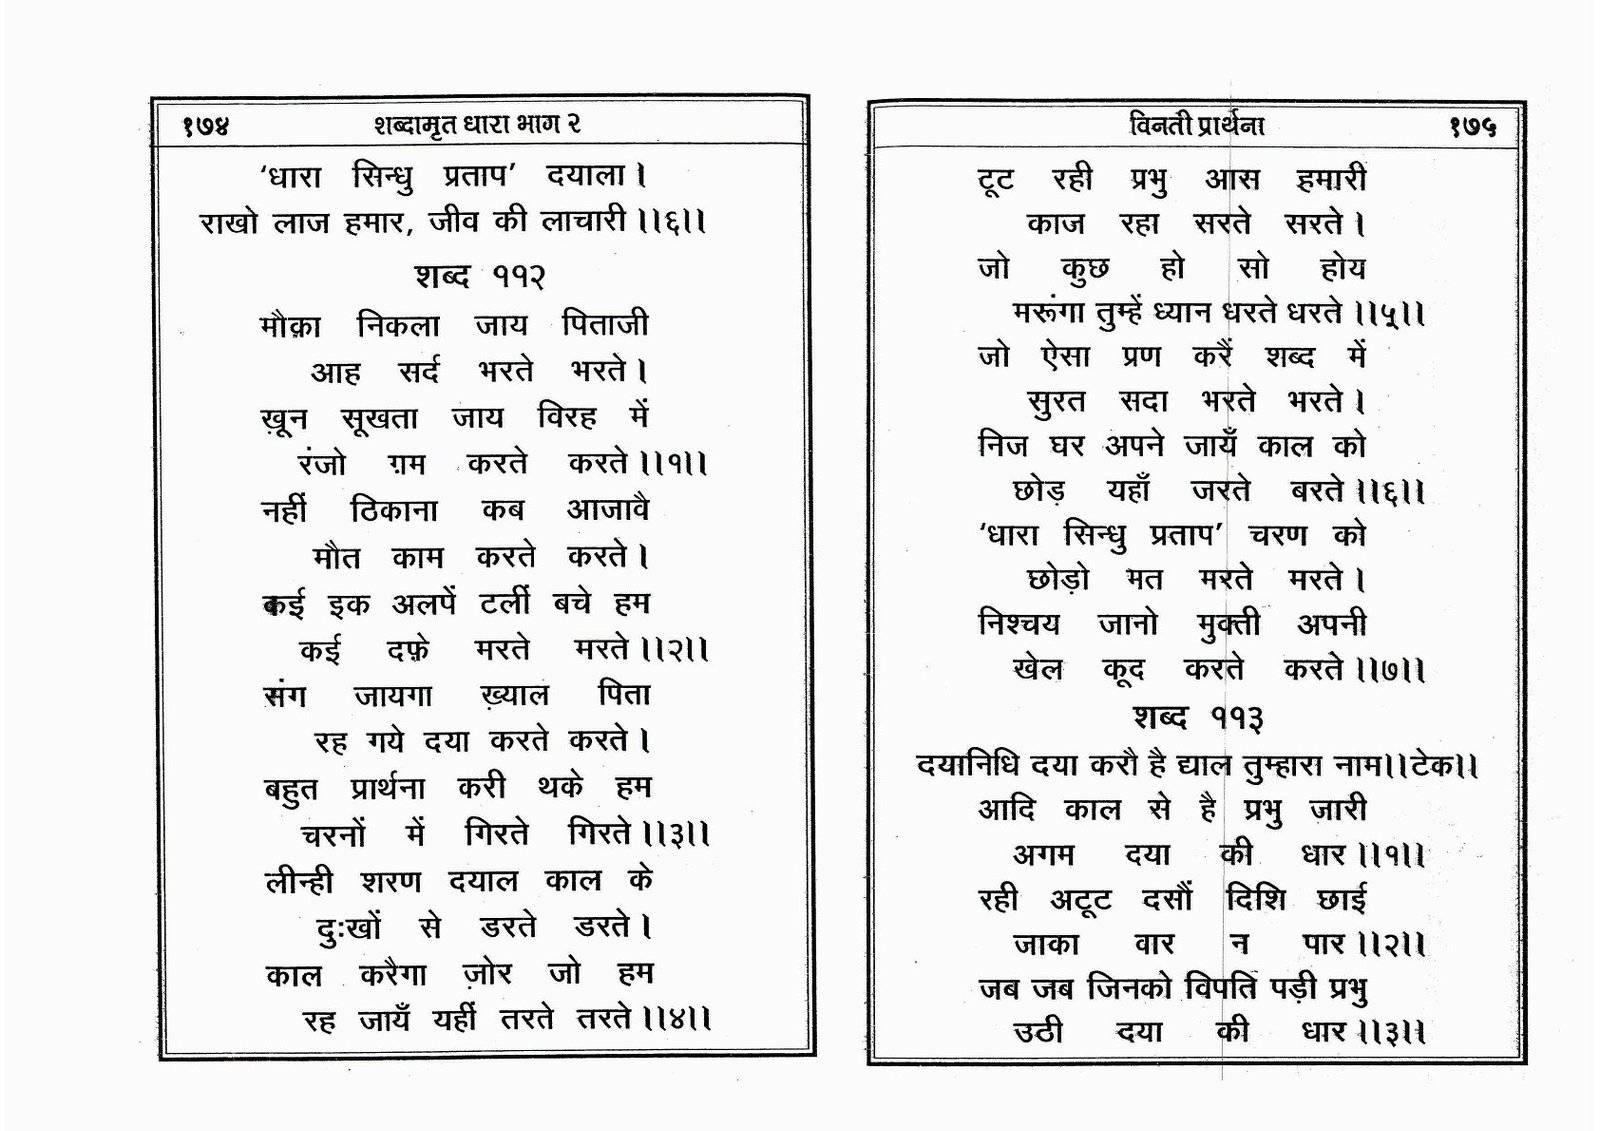 १७४ शब्दामृत धारा भाग २
‘धारा सिन्धु प्रताप’ दयाला।
राखो लाज हमार, जीव की लाचारी।।६।।
शब्द ११२
मौक़ा निकला जाय पिताजी
आह सर्द भरते भरते।
ख़ून सूखता जाय विरह में
रंजो ग़म करते करते।।१।।
नहीं ठिकाना कब आजावै
मौत काम करते करते।
कई इक अलपें टलीं बचे हम
कई दफ़े मरते मरते।।२।।
संग जायगा ख़्याल पिता
रह गये दया करते करते।
बहुत प्रार्थना करी थके हम
चरनों में गिरते गिरते।।३।।
लीन्ही शरण दयाल काल के
दुःखों से डरते डरते।
काल करैगा ज़ोर जो हम
रह जायँ यहीं तरते तरते।।४।।
विनती प्रार्थना १७५
टूट रही प्रभु आस हमारी
काज रहा सरते सरते।
जो कुछ हो सो होय
मरूंगा तुम्हें ध्यान धरते धरते।।५।।
जो ऐसा प्रण करैं शब्द में
सुरत सदा भरते भरते।
निज घर अपने जायँ काल को
छोड़ यहाँ जरते बरते।।६।।
‘धारा सिन्धु प्रताप’ चरण को
छोड़ो मत मरते मरते।
निश्चय जानो मुक्ती अपनी
खेल कूद करते करते।।७।।
शब्द ११३
दयानिधि दया करौ है द्याल तुम्हारा नाम।।टेक।।
आदि काल से है प्रभु जारी
अगम दया की धार।।१।।
रही अटूट दसौं दिशि छाई
जाका वार न पार।।२।।
जब जब जिनको विपति पड़ी प्रभु
उठी दया की धार।।३।।